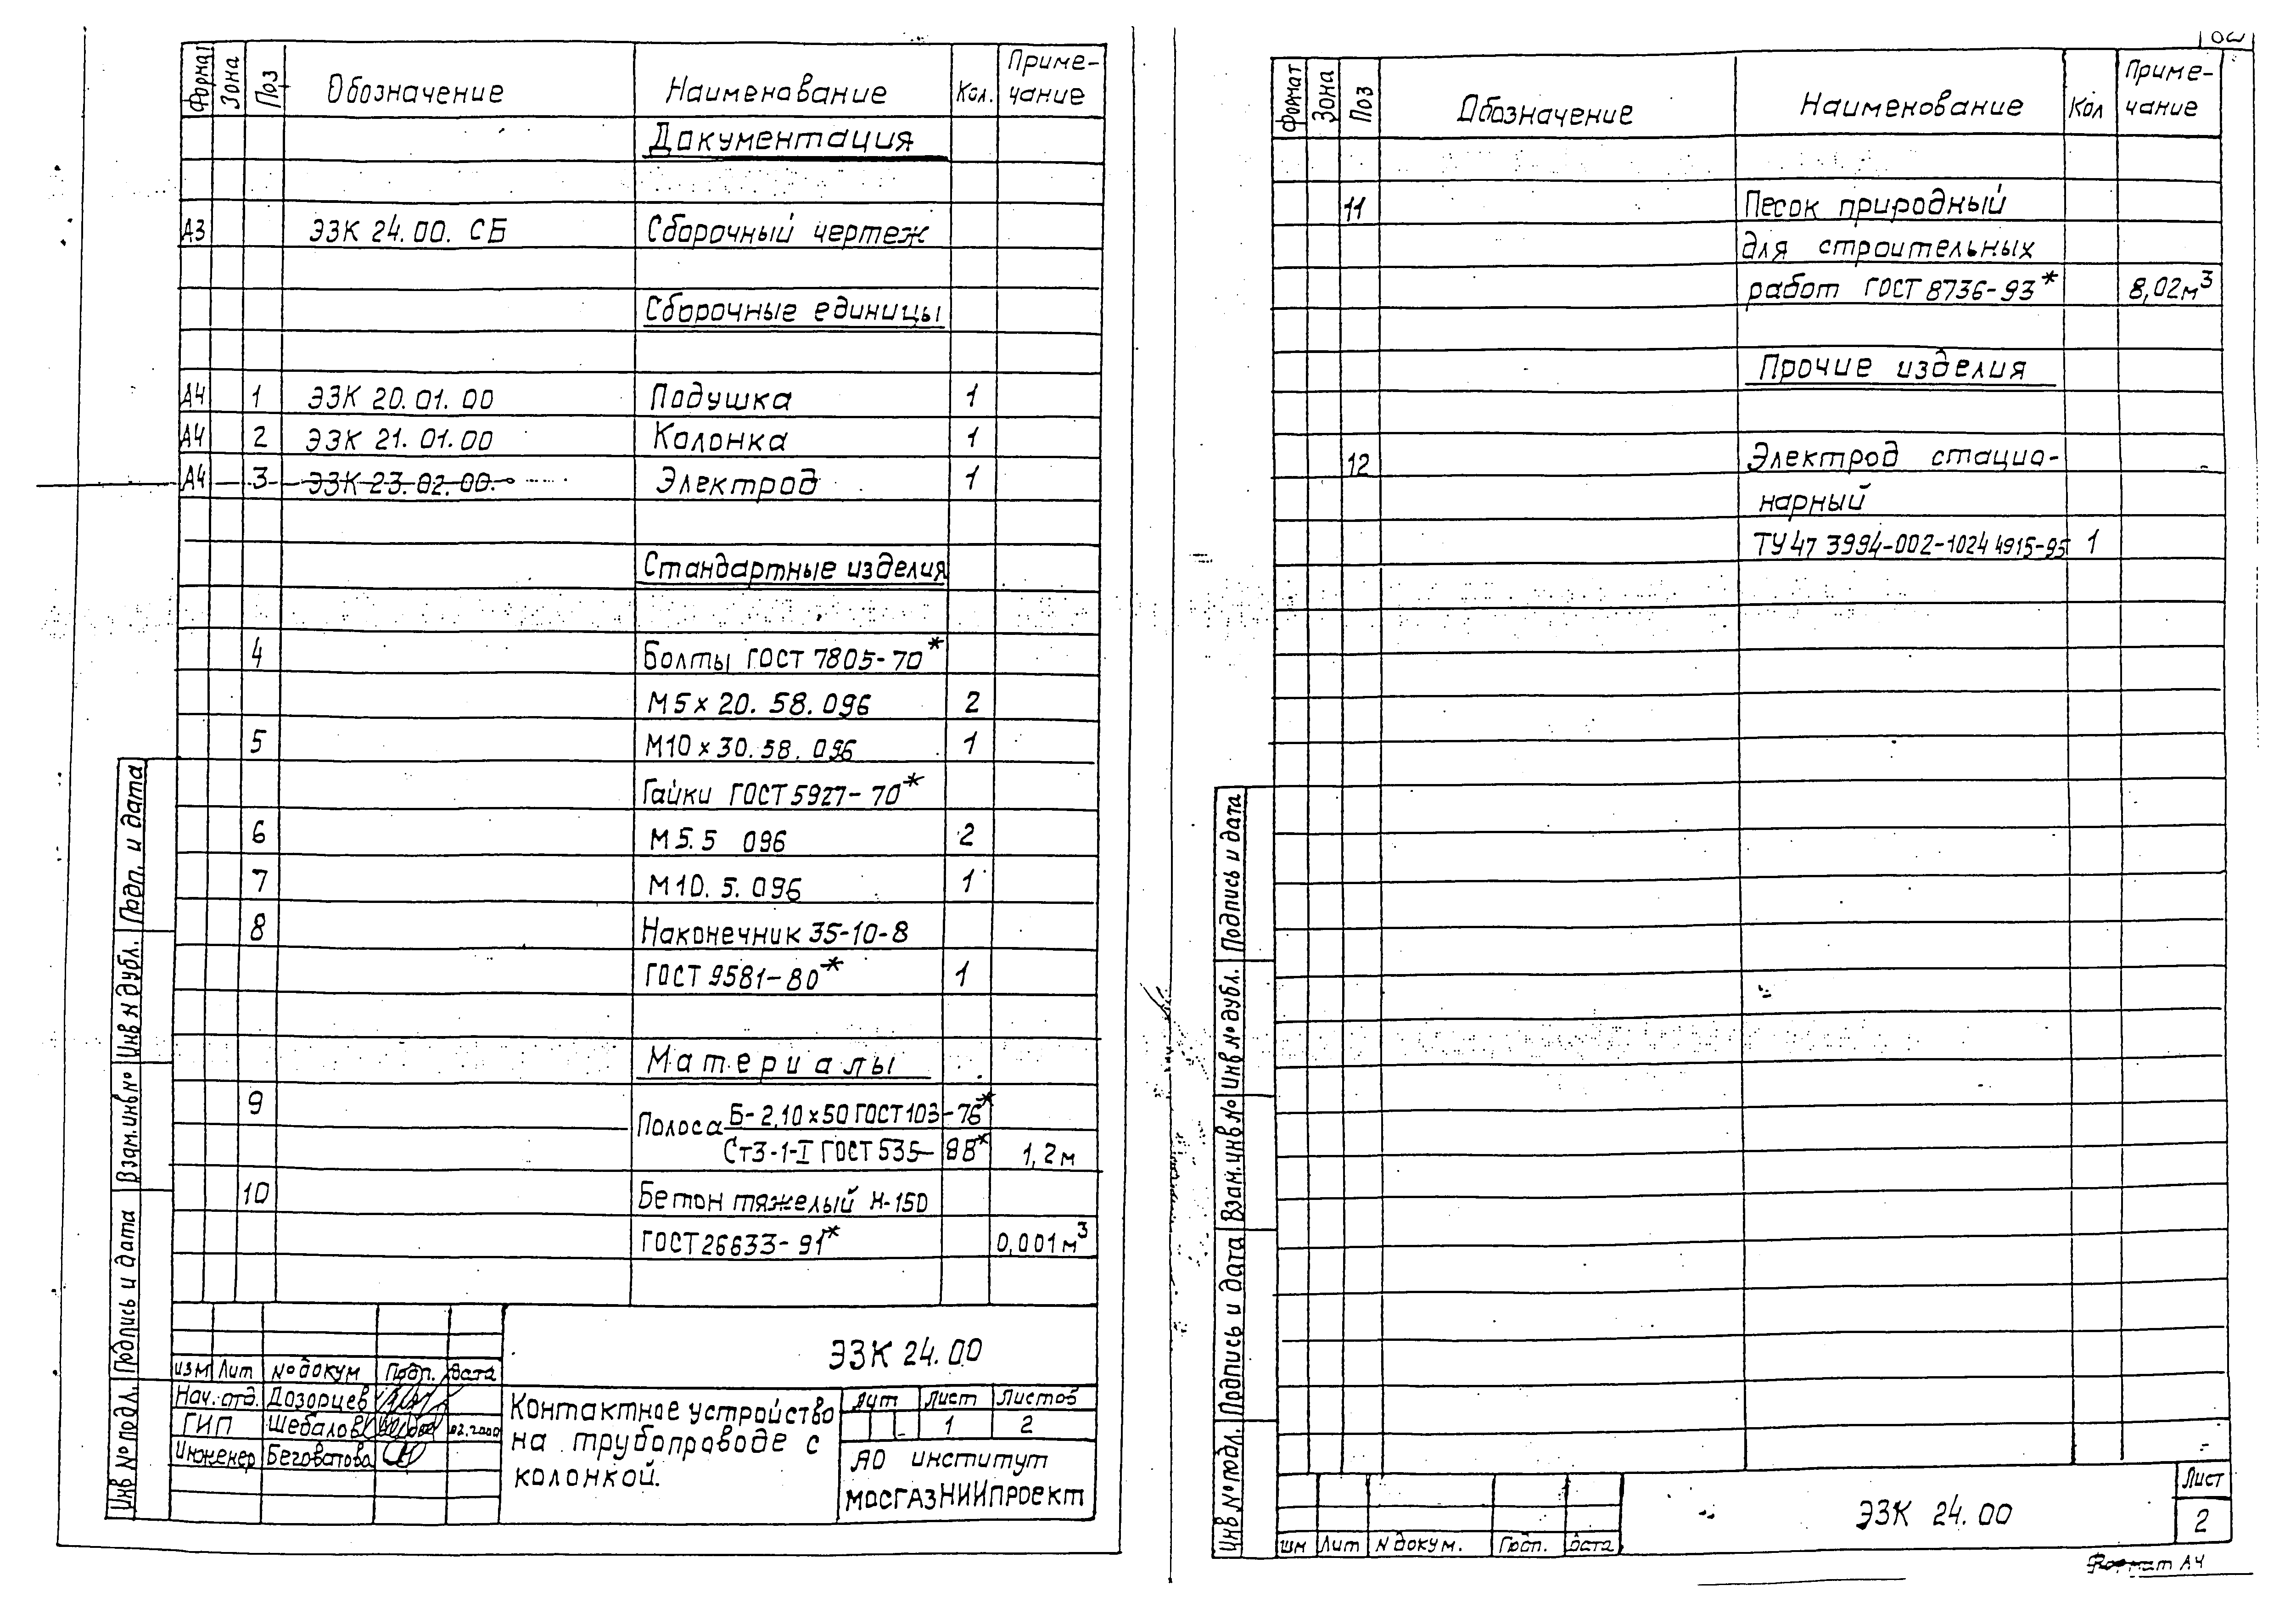 Формат Зона Поз Обозначение Наименование Кол. Приме-чание
Документация
А3 ЭЗК 24.00. СБ Сборочный чертеж
Сборочные единицы
А4 1 ЭЗК 20.01.00 Подушка 1
А4 2 ЭЗК 21.01.00 Колонка 1
А4 3 ЭЗК 23.02.00. Электрод 1
Стандартные изделия
4 Болты ГОСТ 7805-70*
М5х20.58.096 2
5 М10х30.58.096 1
Гайки ГОСТ 5927-70*
6 М5.5 096 2
7 М10.5.096 1
8 Наконечник 35-10-8
ГОСТ 9581-80* 1
Материалы
9 Полоса Б-2,10х50 ГОСТ 103-76*
Ст3-1-I ГОСТ 535-88* 1,2м
10 Бетон тяжелый М-150
ГОСТ 26633-91* 0,001м³
ЭЗК 24.00
изм Лит № докум Подп. дата
Нач. отд. Дозорцев
ГИП Шебалов 02.2000
Инженер Беговатова
Контактное устройство
на трубопроводе с
колонкой.
Лит Лист Листов
1 2
АО институт
МОСГАЗНИИпроект
Подп. и дата
Инв N дубл.
Взам.инв №
Подпись и дата
Инв № подл.
Формат Зона Поз Обозначение Наименование Кол Приме-чание
11 Песок природный
для строительных
работ ГОСТ 8736-93* 8,02м³
Прочие изделия
12 Электрод стацио-
нарный
ТУ 47 3994-002-10244915-95 1
Подпись и дата
Инв № дубл.
Взам.инв №
Подпись и дата
Инв № подл.
Лит N докум. Подп. дата
ЭЗК 24.00
Лист
2
Формат А4